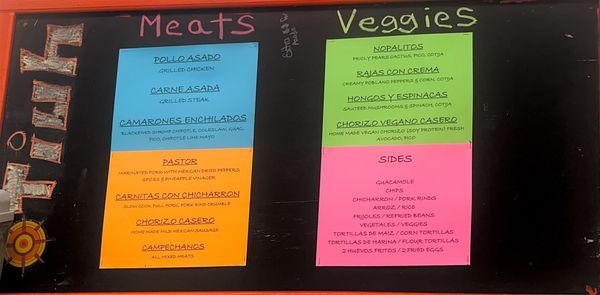 Meats
POLLO ASADO
GRILLED CHICKEN
CARNE ASADA
GRILLED STEAK
CAMARONES ENCHILADOS
BLACKENED SHRIMP CHIPOTLE, COLESLAW, GUAC,
PICO, CHIPOTLE LIME MAYO
PASTOR
MARINATED PORK WITH MEXICAN DRIED PEPPERS
SPICES & PINEAPPLE VINAGER
CARNITAS CON CHICHARRON
SLOW COOK PULL PORK, PORK RIND CRUMBLE
CHORIZO CASERO
HOME MADE MILD MEXICAN SAUSAGE
CAMPECHANOS
ALL MIXED MEATS
Veggies
NOPALITOS
PRICLY PEARS CACTUS, PICO, COTIJA
RAJAS CON CREMA
CREAMY POBLANO PEPPERS & CORN, COTIJA
HONGOS Y ESPINACAS
SAUTEED MUSHROOMS & SPINACH, COTIJA
CHORIZO VEGANO CASERO
HOME MADE VEGAN CHORIZO (SOY PROTEIN) FRESH
AVOCADO, PICO
SIDES
GUACAMOLE
CHIPS
CHICHARRON / PORK RINDS
ARROZ / RICE
FRIJOLES / REFRIED BEANS
VEGETALES / VEGGIES
TORTILLAS DE MAIZ / CORN TORTILLAS
TORTILLAS DE HARINA / FLOUR TORTILLAS
2 HUEVOS FRITOS / 2 FRIED EGGS